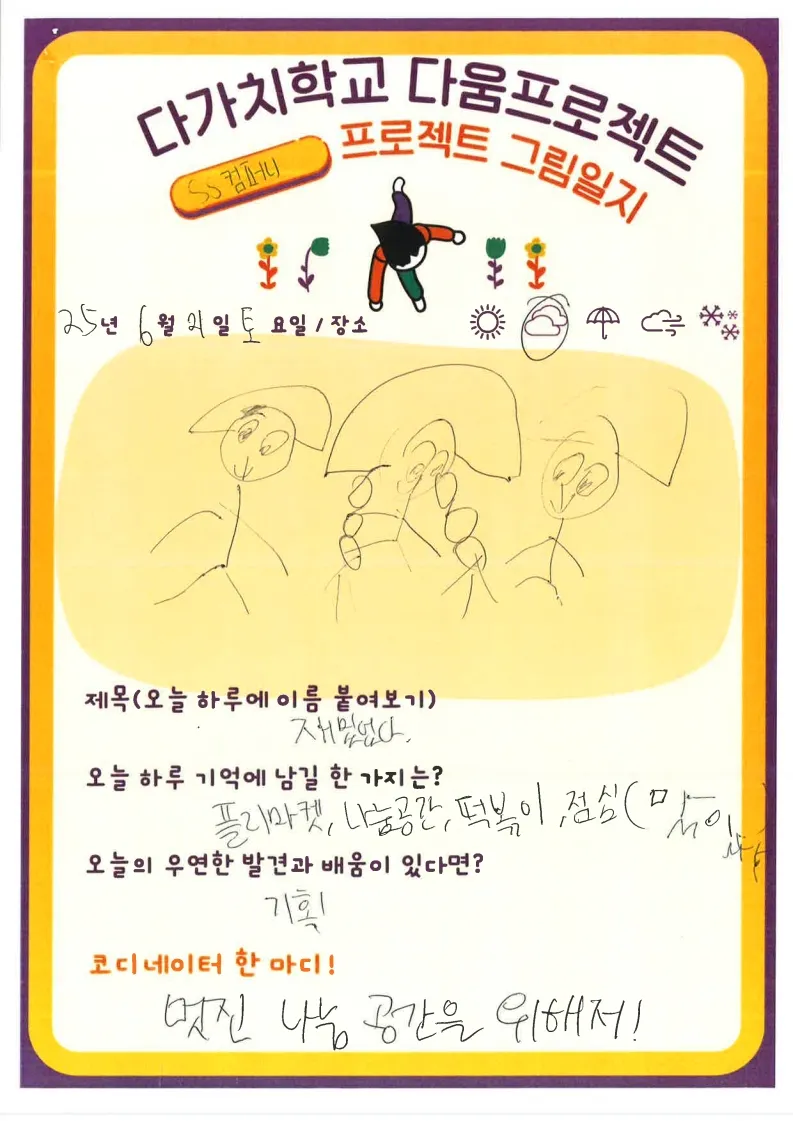 다가치학교 다움프로젝트
프로젝트 그림일지
SS컴퍼니
25년 6월 21일 토 요일 / 장소
제목(오늘 하루에 이름 붙여보기)
재밌었다.
오늘 하루 기억에 남길 한 가지는?
플리마켓, 나눔공간, 떡볶이, 점심(맛있다)
오늘의 우연한 발견과 배움이 있다면?
기획
코디네이터 한 마디!
멋진 나눔 공간을 위해저!